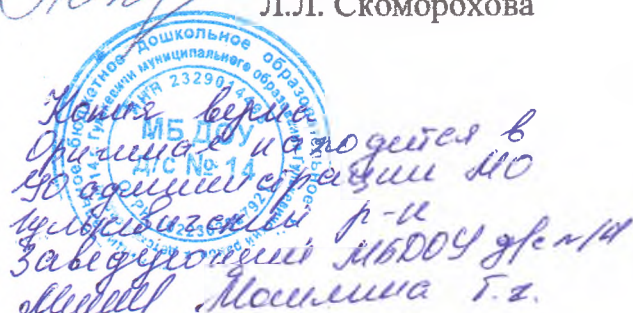 Л.Л. Скоморохова
дошкольное образовательное
МБ ДОУ
Д/С № 14
Копия верна
Оригинал находится в
УО администрации МО
Гулькевичский р-н
Заведующий МБДОУ д/с №14
Т.г.